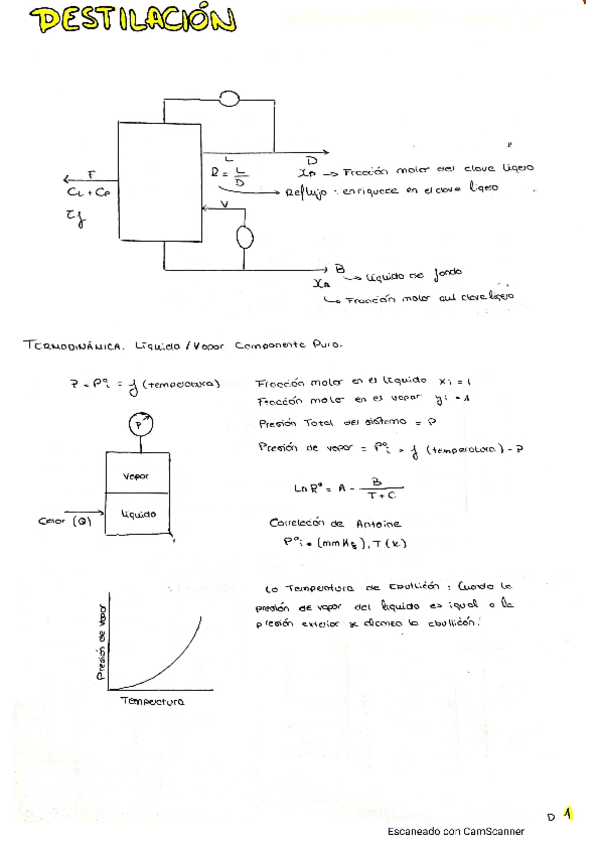 DESTILACIÓN
L
D
R = L/D
XD → Fracción molar del clave ligero
Reflujo: enriquece en el clave ligero
F
V
B
→ Líquido de fondo
→ Fracción molar del clave ligero
TERMODINÁMICA. Líquido / Vapor Componente Puro.
P = Pºi = f (temperatura)
Fracción molar en el líquido xi = 1
Fracción molar en el vapor yi = 1
Presión Total del sistema = P
Presión de vapor = Pºi = f (temperatura) = P
P
Vapor
Líquido
Calor (Q)
Ln Pº = A - B/(T + C)
Correlación de Antoine
Pºi = (mmHg), T (K)
La Temperatura de Ebullición: Cuando la
presión de vapor del líquido es igual a la
presión exterior se alcanza la ebullición.
Presión de vapor
Temperatura
D 1
Escaneado con CamScanner